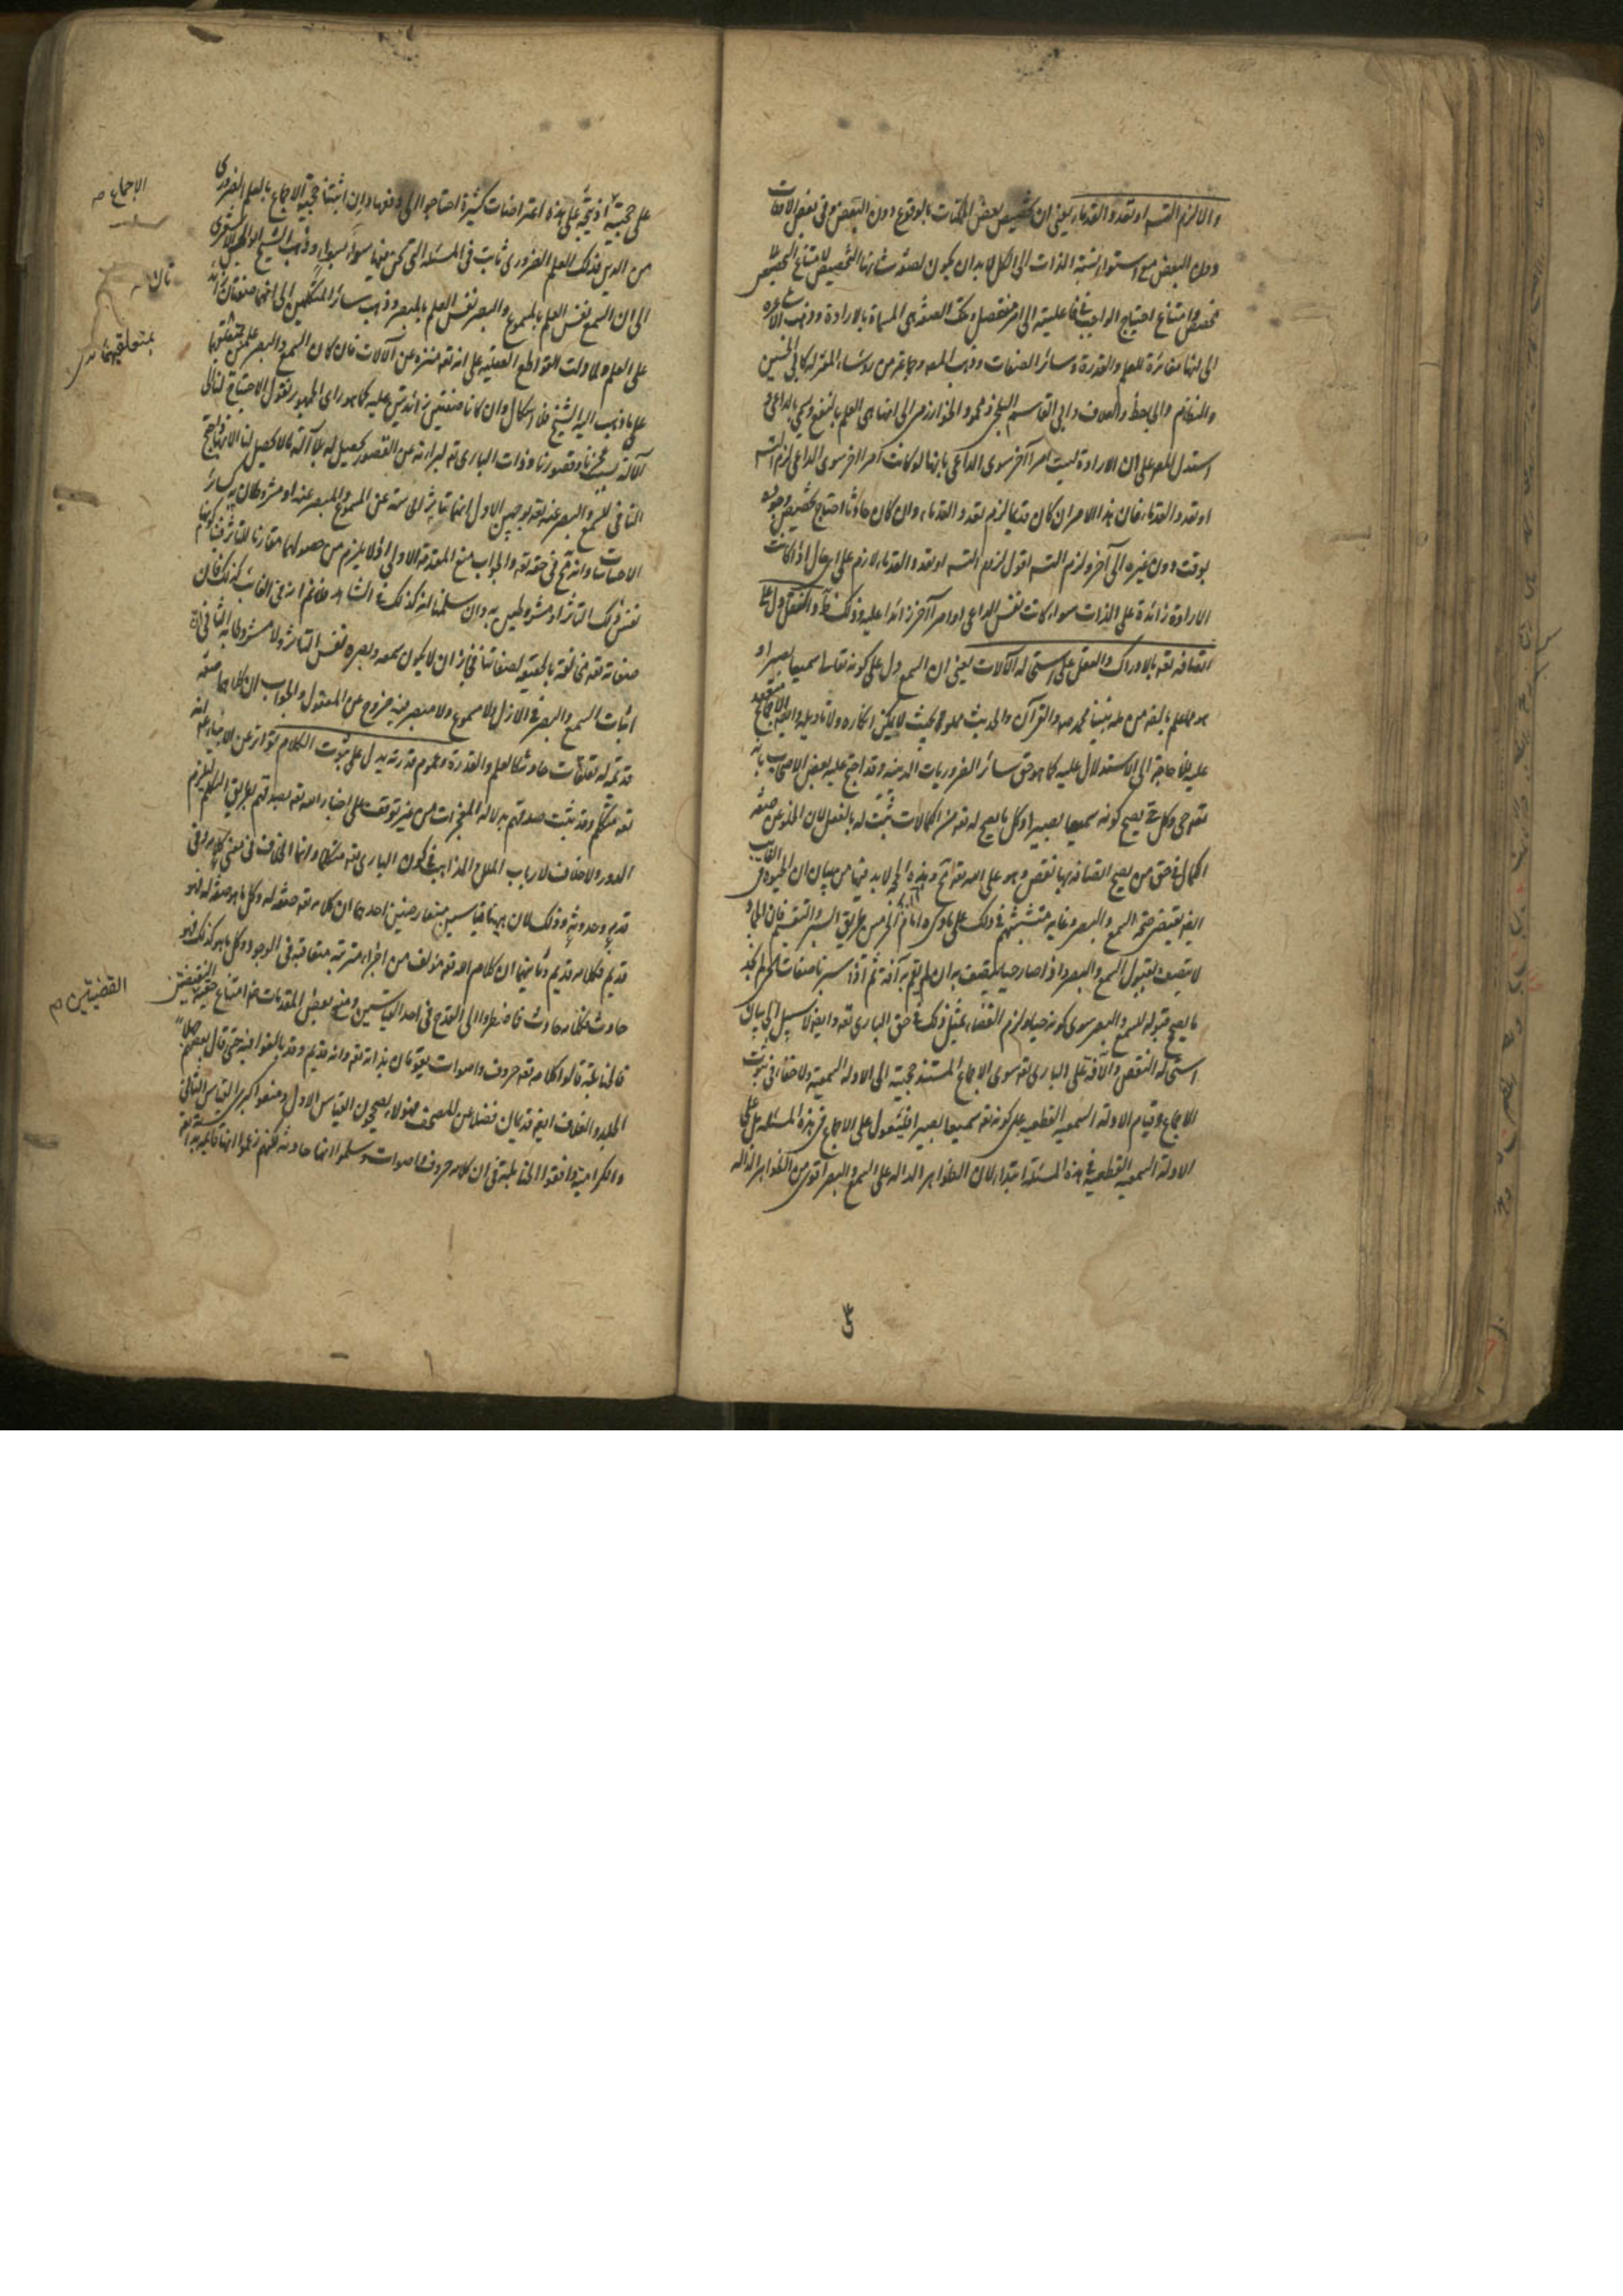 والا لزم التسـ او تعدد القدماء يعنى ان تخصيص بعض الممكنات بالوقوع دون البعض وفى بعض الاوقات
دون البعض مع استواء نسبة الذات الى الكل لا بد ان يكون لصفة شانها التخصيص لامتناع التخصيص بلا
مخصص وامتناع احتياج الواجب فى فاعليته الى امر منفصل وتلك الصفة هى المسماة بالارادة وذهب الاشاعره
الى انها مغائرة للعلم والقدرة وسائر الصفات وذهب المصه وجماعة من رؤساء المعتزله كابى الحسين
والنظام والجاحظ والعلاف وابى القاسم البلخى ومحمود الخوارزمى الى انها هى العلم بالنفع ويسمى بالداعى و
استدل المصه على ان الارادة ليست امرا آخر سوى الداعى بانها لو كانت امرا اخر سوى الداعى لزم التسـ
او تعدد القدماء فان هذا الامر ان كان قديما لزم تعدد القدماء وان كان حادثا احتاج تخصيص وجوده
بوقت دون غيره الى آخر ولزم التسـ اقول لزوم التسـ او تعدد القدماء لازم على اى حال اذا كانت
الارادة زائدة على الذات سواء كانت نفس الداعى او امرا آخر زائدا عليه وذلك ظ والنقل دل على
اتصافه تعه بالادراك والعقل على استحاله الآلات يعنى ان السمع دل على كونه تعالى سميعا بصيرا و
هو مما علم بالضه من دين نبينا محمد صه والقرآن والحديث مملو به بحيث لا يمكن انكاره ولا تاويله والاجماع منعقد
عليه فلا حاجة الى الاستدلال عليه كما هو حق سائر الضروريات الدينيه وقد احتج عليه بعض الاصحاب بانه
تعه حى وكل حى يصح كونه سميعا بصيرا وكل ما يصح له تعه من الكمالات ثبت له بالفعل لان الخلو عن صفه
الكمال فى حق من يصح اتصافه بها نقص وهو على الله تعه مح وهذه الحجة لا بد فيها من بيان ان الحيوة فى الغايب
ايضه يقتضى صحة السمع والبصر وغاية متشبثهم فى ذلك على ما ذكره امام الحرمين طريق السبر والتقسيم فان الجماد
لا يتصف بقبول السمع والبصر واذا صار حيا يتصف به ان لم يقم به آفة ثم اذا سبرنا صفات الحى لم نجد
ما يصح قبوله للسمع والبصر سوى كونه حيا ولزم القضاء بمثل ذلك فى حق البارى تعه وايضه لا سبيل الى بيان
استحاله النقص والآفة على البارى تعه سوى الاجماع المستند حجيته الى الادلة السمعية ولا خفاء فى ثبوت
الاجماع وقيام الادلة السمعيه القطعيه على كونه تعه سميعا بصيرا فليعول على الاجماع فى هذه المسئله بل على
الادلة السمعيه القطعية فى هذه المسئلة ابتداء لان الظواهر الداله على السمع والبصر اقوى من الظواهر الداله
على حجية الاجماع اذ يتجه على هذه اعتراضات كثيرة احتاجوا الى دفعها وان اثبتنا حجية الاجماع بالعلم الضرورى
من الدين فذلك العلم الضرورى ثابت فى المسئله التى نحن فيها سواء بسواء وذهب الشيخ ابو الحسن الاشعرى
الى ان السمع نفس العلم بالمسموع والبصر نفس العلم بالمبصر وذهب سائر المتكلمين الى انهما صفتان زائدتان
على العلم ولما دلت القواطع العقليه على انه تعه منزه عن الآلات فان كان السمع والبصر علمين بمتعلقهما
على ما ذهب اليه الشيخ فلا اشكال وان كانا صفتين زائدتين عليه كما هو راى الجمهور نقول الاحتياج لنا الى
الآلة بسبب عجزنا وقصورنا وذات البارى تعه لبراءته عن القصور يحصل له بلا آلة ما لا يحصل لنا الا بها واحتج
النافى للسمع والبصر عنه تعه بوجهين الاول انهما تأثر الحاسة عن المسموع والمبصر عنه او مشروطان به كسائر
الاحساسات وانه مح فى حقه تعه والجواب منع المقدمة الاولى اذ لا يلزم من حصولهما مقارنا للتأثر فينا كونهما
نفس ذلك التأثر او مشروطين به وان سلمنا انه كذلك فى الشاهد فلا نم انه فى الغائب كذلك فان
صفاته تعه مخالفة بالحقيقة لصفاتنا فجاز ان لا يكون سمعه وبصره نفس التاثر ولا مشروطا به الثانى ان
اثبات السمع والبصر فى الازل ولا مسموع ولا مبصر فيه خروج عن المعقول والجواب ان كلا منهما صفه
قديمة له تعلقات حادثه كالعلم والقدرة وعموم قدرته يدل على ثبوت الكلام تواتر عن الانبياء عم انه
تعه متكلم وقد ثبت صدقهم بدلالة المعجزات من غير توقف على اخبار الله تعه بصدقهم بطريق التكلم ليلزم
الدور ولا خلاف لارباب الملل والمذاهب فى كون البارى تعه متكلما وانما الخلاف فى معنى كلامه وفى
قدمه وحدوثه وذلك لان ههنا قياسين متعارضين احدهما ان كلامه تعه صفة له وكل ما هو صفة له فهو
قديم فكلامه قديم وثانيهما ان كلام الله تعه مؤلف من اجزاء مترتبه متعاقبة فى الوجود وكل ما هو كذلك فهو
حادث فكلامه حادث فاضطروا الى القدح فى احد القياسين ومنع بعض المقدمات لامتناع حقية النقيضين
فالحنابلة قالوا كلامه تعه حروف واصوات يقومان بذاته تعه وانه قديم وقد بالغوا فيه حتى قال بعضهم جهلا
الجلد والغلاف ايضه قديمان فضلا عن المصحف فهؤلاء يصححون القياس الاول ومنعوا كبرى القياس الثانى
والكرامية وافقوا الحنابلة فى ان كلامه حروف واصوات وسلموا انها حادثه لكنهم زعموا انها قائمه بذاته تعه
الاجماع صه
بمتعلقيهما
القضيتين م